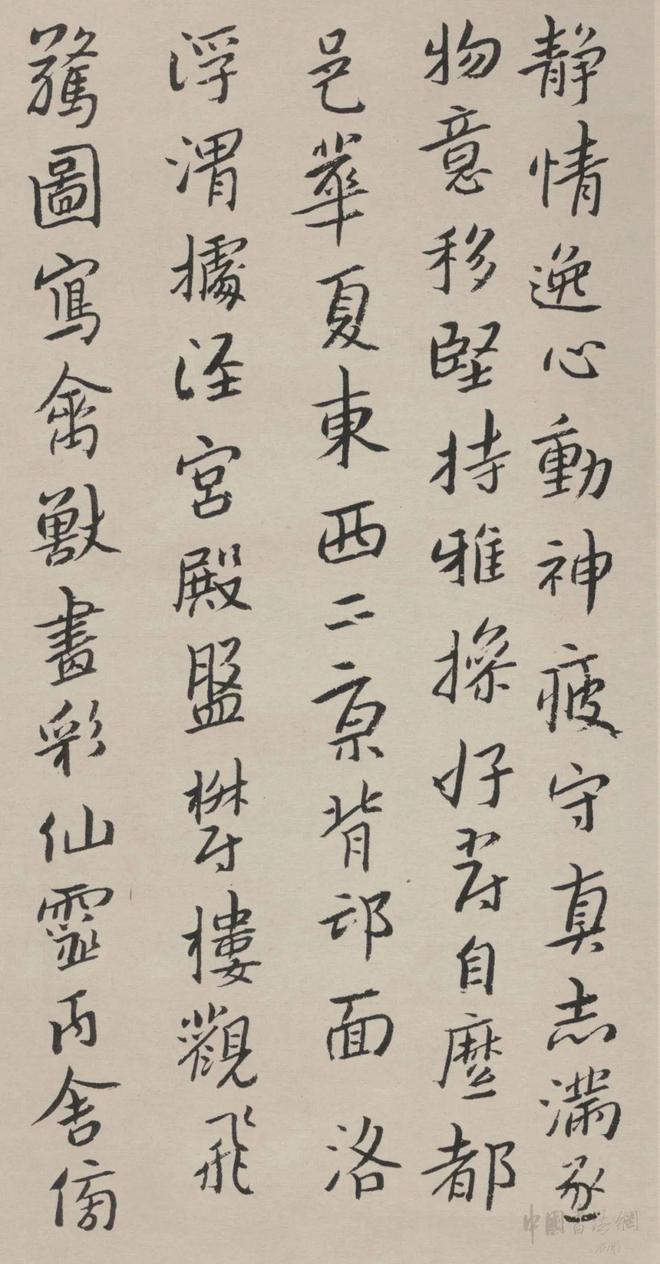 静情逸心動神疲守真志滿逐
物意移堅持雅操好爵自縻都
邑華夏東西二京背邙面洛
浮渭據涇宮殿盤欝樓觀飛
驚圖寫禽獸畫彩仙靈丙舍傍
中國書法網